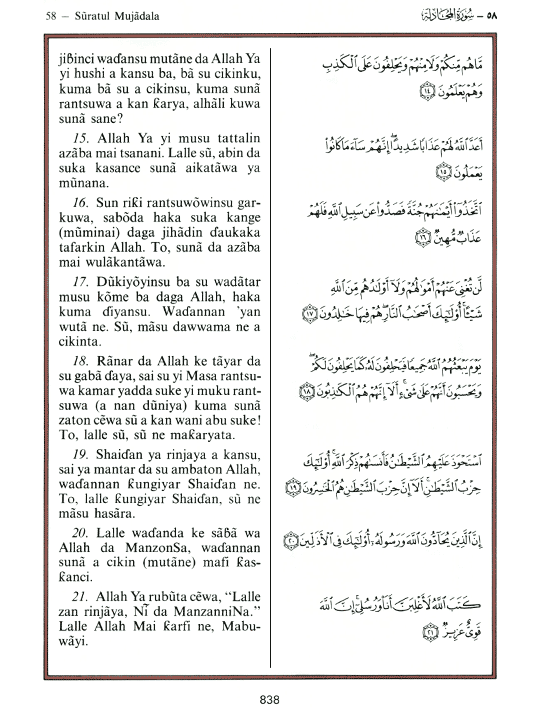 58 — Sũratul Mujãdala
٥٨ — سُورَةُ المُجَادلة
jiɓinci waɗansu mutãne da Allah Ya
yi hushi a kansu ba, bã su cikinku,
kuma bã su a cikinsu, kuma sunã
rantsuwa a kan ƙarya, alhãli kuwa
sunã sane?
15. Allah Ya yi musu tattalin
azãba mai tsanani. Lalle sũ, abin da
suka kasance sunã aikatãwa ya
mũnana.
16. Sun riƙi rantsuwõwinsu gar-
kuwa, sabõda haka suka kange
(mũminai) daga jihãdin ɗaukaka
tafarkin Allah. To, sunã da azãba
mai wulãkantãwa.
17. Dũkiyõyinsu ba su wadãtar
musu kõme ba daga Allah, haka
kuma ɗiyansu. Waɗannan 'yan
wutã ne. Sũ, mãsu dawwama ne a
cikinta.
18. Rãnar da Allah ke tãyar da
su gabã ɗaya, sai su yi Masa rantsu-
wa kamar yadda suke yi muku rant-
suwa (a nan dũniya) kuma sunã
zaton cẽwa sũ a kan wani abu suke!
To, lalle sũ, sũ ne maƙaryata.
19. Shaiɗan ya rinjaya a kansu,
sai ya mantar da su ambaton Allah,
waɗannan ƙungiyar Shaiɗan ne.
To, lalle ƙungiyar Shaiɗan, sũ ne
mãsu hasãra.
20. Lalle waɗanda ke sãɓã wa
Allah da ManzonSa, waɗannan
sunã a cikin (mutãne) mafi ƙas-
ƙanci.
21. Allah Ya rubũta cẽwa, "Lalle
zan rinjãya, Nĩ da ManzanniNa."
Lalle Allah Mai ƙarfi ne, Mabu-
wãyi.
مَّا هُم مِّنكُمْ وَلَا مِنْهُمْ وَيَحْلِفُونَ عَلَى ٱلْكَذِبِ
وَهُمْ يَعْلَمُونَ ١٤
أَعَدَّ ٱللَّهُ لَهُمْ عَذَابًا شَدِيدًا إِنَّهُمْ سَآءَ مَا كَانُوا۟
يَعْمَلُونَ ١٥
ٱتَّخَذُوٓا۟ أَيْمَٰنَهُمْ جُنَّةً فَصَدُّوا۟ عَن سَبِيلِ ٱللَّهِ فَلَهُمْ
عَذَابٌ مُّهِينٌ ١٦
لَّن تُغْنِىَ عَنْهُمْ أَمْوَٰلُهُمْ وَلَآ أَوْلَٰدُهُم مِّنَ ٱللَّهِ
شَيْـًٔا أُو۟لَٰٓئِكَ أَصْحَٰبُ ٱلنَّارِ هُمْ فِيهَا خَٰلِدُونَ ١٧
يَوْمَ يَبْعَثُهُمُ ٱللَّهُ جَمِيعًا فَيَحْلِفُونَ لَهُۥ كَمَا يَحْلِفُونَ لَكُمْ
وَيَحْسَبُونَ أَنَّهُمْ عَلَىٰ شَىْءٍ أَلَآ إِنَّهُمْ هُمُ ٱلْكَٰذِبُونَ ١٨
ٱسْتَحْوَذَ عَلَيْهِمُ ٱلشَّيْطَٰنُ فَأَنسَىٰهُمْ ذِكْرَ ٱللَّهِ أُو۟لَٰٓئِكَ
حِزْبُ ٱلشَّيْطَٰنِ أَلَآ إِنَّ حِزْبَ ٱلشَّيْطَٰنِ هُمُ ٱلْخَٰسِرُونَ ١٩
إِنَّ ٱلَّذِينَ يُحَآدُّونَ ٱللَّهَ وَرَسُولَهُۥٓ أُو۟لَٰٓئِكَ فِى ٱلْأَذَلِّينَ ٢٠
كَتَبَ ٱللَّهُ لَأَغْلِبَنَّ أَنَا۠ وَرُسُلِىٓ إِنَّ ٱللَّهَ
قَوِىٌّ عَزِيزٌ ٢١
838